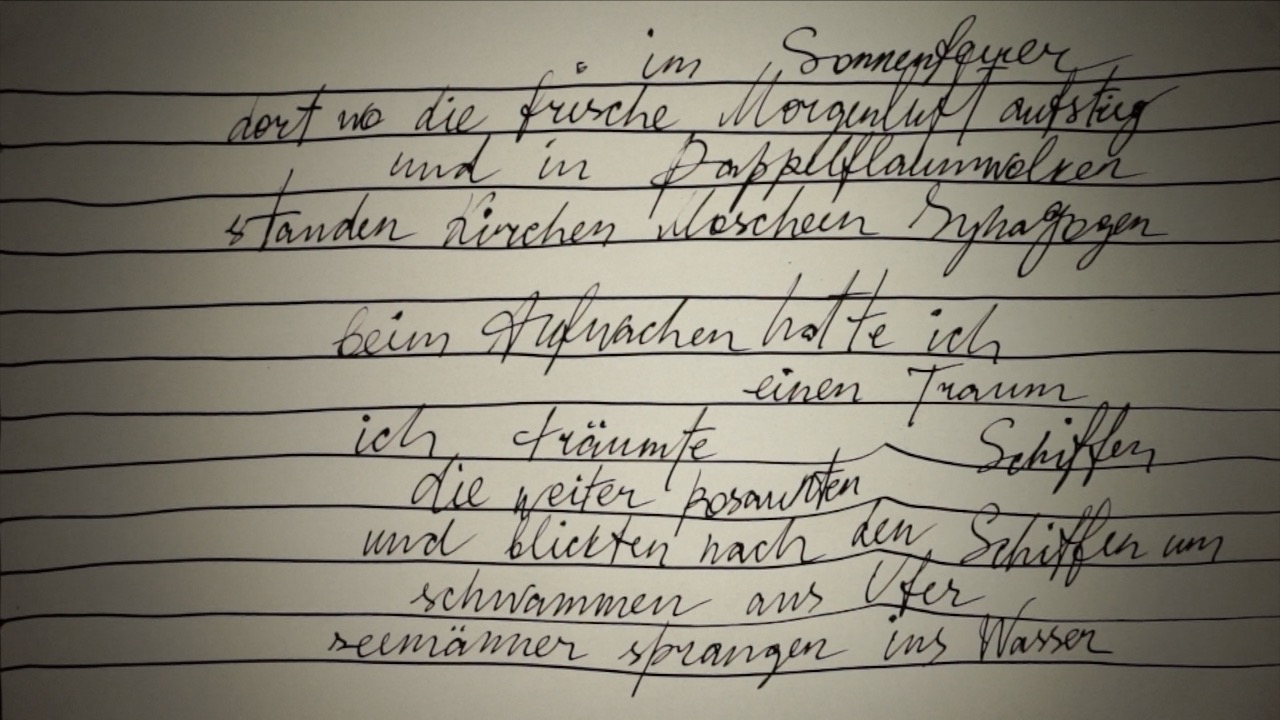 im Sonnenfeuer
dort wo die frische Morgenluft aufstieg
und in Pappelflaumwolken
standen Kirchen Moscheen Synagogen
beim Aufwachen hatte ich
einen Traum
ich träumte Schiffen
die weiter posaunten
und blickten nach den Schiffen um
schwammen ans Ufer
seemänner sprangen ins Wasser